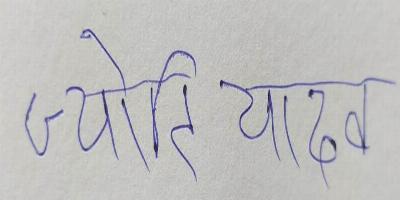 ज्योति यादव